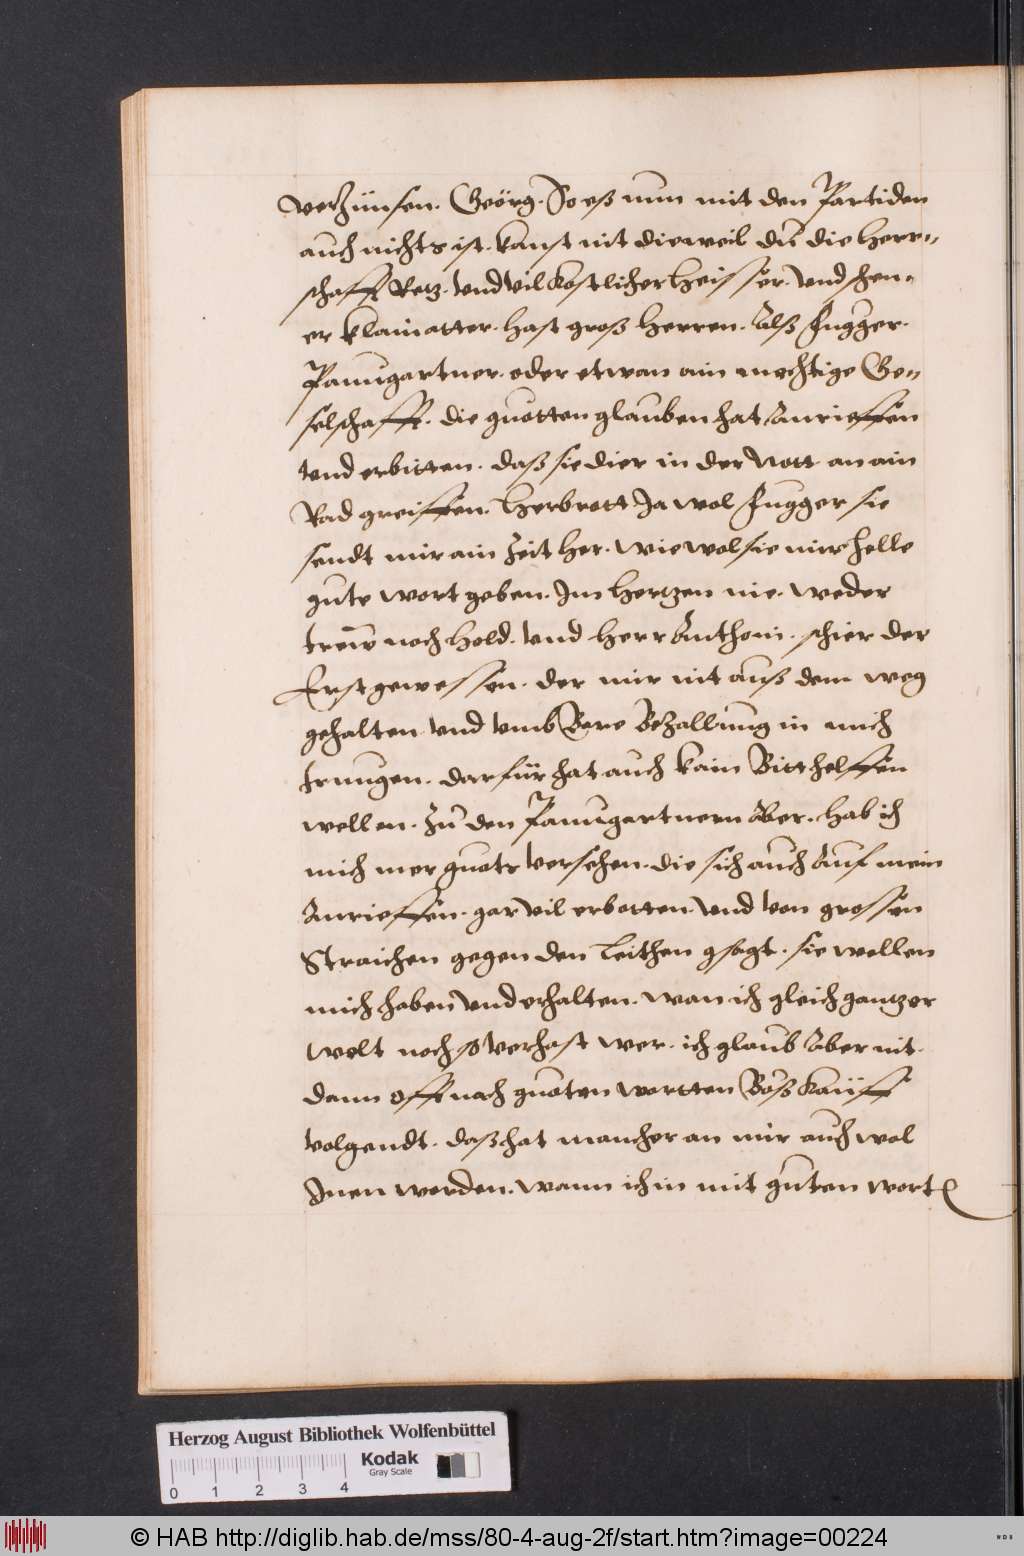 verzünsen. Geörg. So eß nun mit den Partiden
auch nichts ist. kanst nit dieweil du die herr=
schafft Retz. vnd vil kostlicher heisser. vnd schen=
er klainatter. hast groß herren. Alß Fugger.
Paumgartner. oder etwan ain mechtige Ge=
selschafft. die guotten glauben hat Anrieffen
vnd erbitten. daß sie dier in der Nott an ain
Rad greiffen. Herbrott Ja wol Fugger sie
sendt mir ain Zeit her. wie wol sie mir helle
gute wort geben. Im hertzen nie. weder
trew noch hold. vnd herr Anthoni. schier der
Erst gewessen. der mir nit auß dem weg
gehalten vnd vmb Bare Bezallung in mich
trungen. darfür hat auch kain Bitt helffen
wellen. Zu den Paumgartnern Aber. hab ich
mich mer guots versehen. die sich auch Auf mein
Anrieffen. gar vil erbotten. vnd von grossen
Straichen gegen den Leithen gsagt. sie wellen
mich haben vnd erhalten. wan ich gleich gantzer
welt noch so verhast wer. ich glaub Aber nit.
dann offt nach guoten wortten Böß Kaüff
volgendt. daß hat mancher an mir auch wol
Inen worden. wann ich in mit guten wort
Herzog August Bibliothek Wolfenbüttel
Kodak
Gray Scale
0 1 2 3 4
© HAB http://diglib.hab.de/mss/80-4-aug-2f/start.htm?image=00224